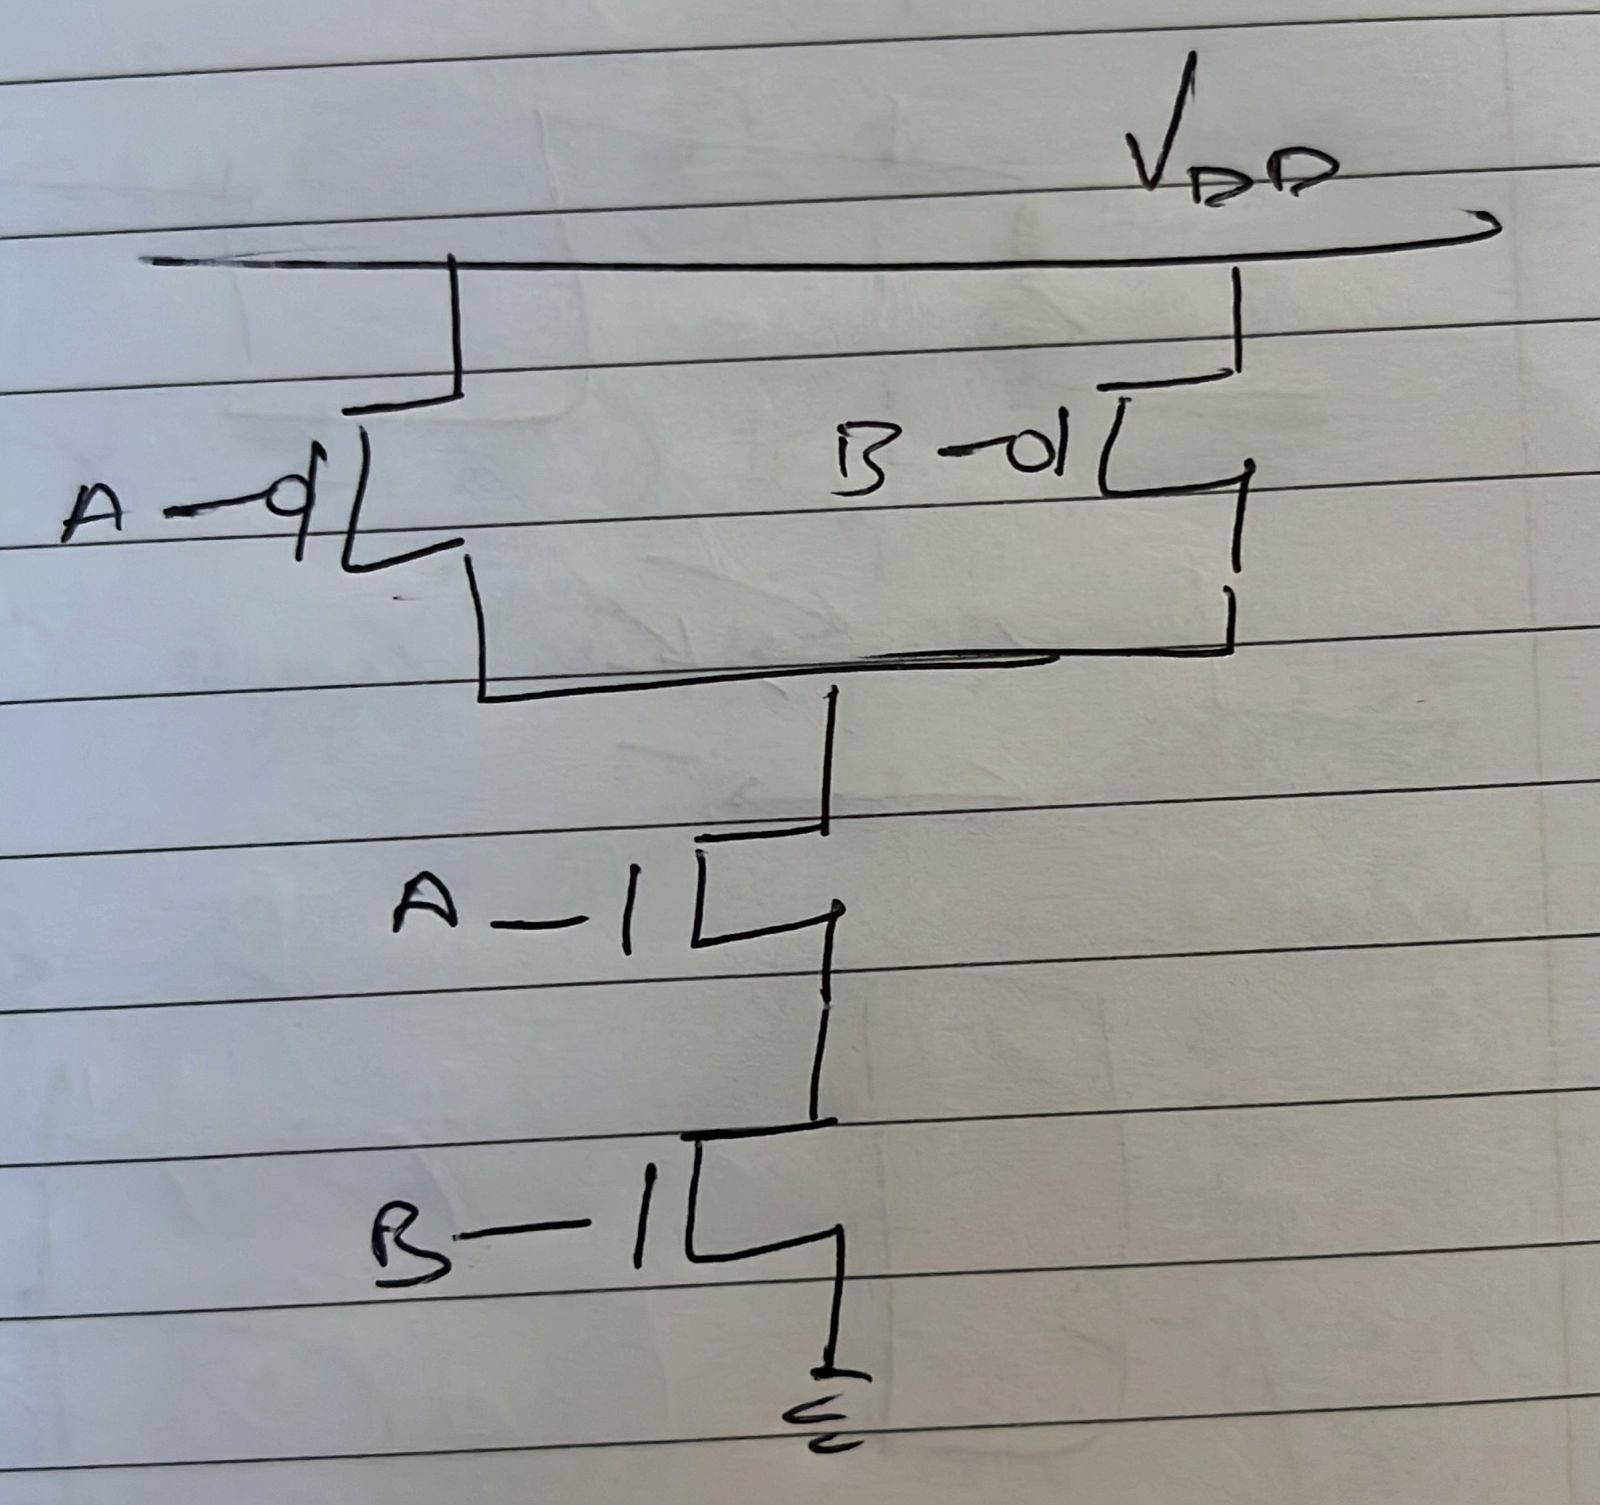 VDD
A
B
A
B